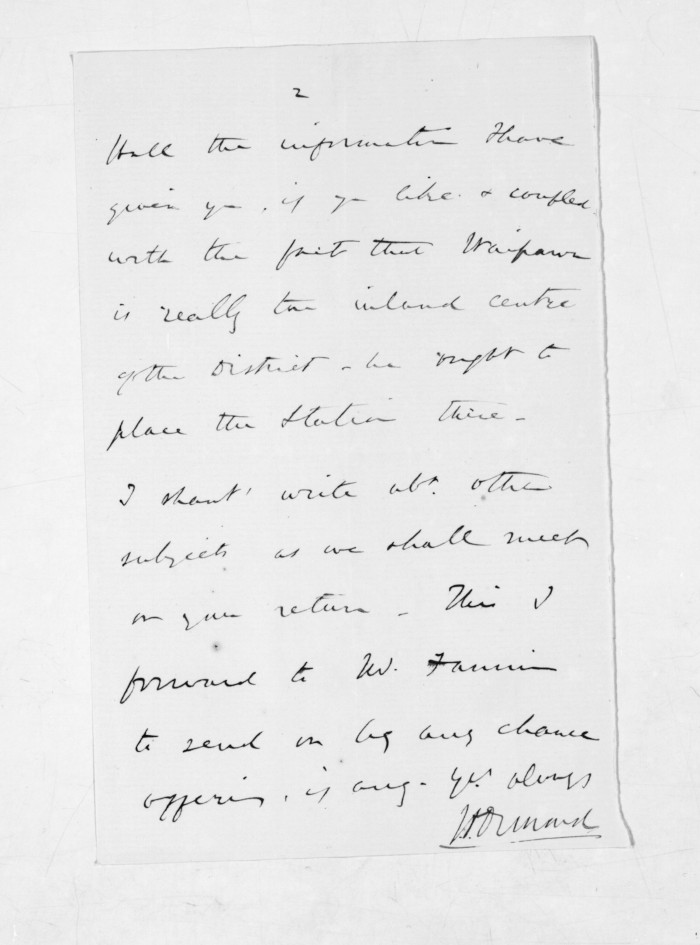 2
Hall the information I have
given you, if you like. & coupled
with the fact that Waipawa
is really the inland centre
of the District - he ought to
place the Station there -
I shant' write abt. other
subjects as we shall meet
on your return - This I
forward to W. Fannin
to send on by any chance
offering, if any - Yrs. always
J D Ormond